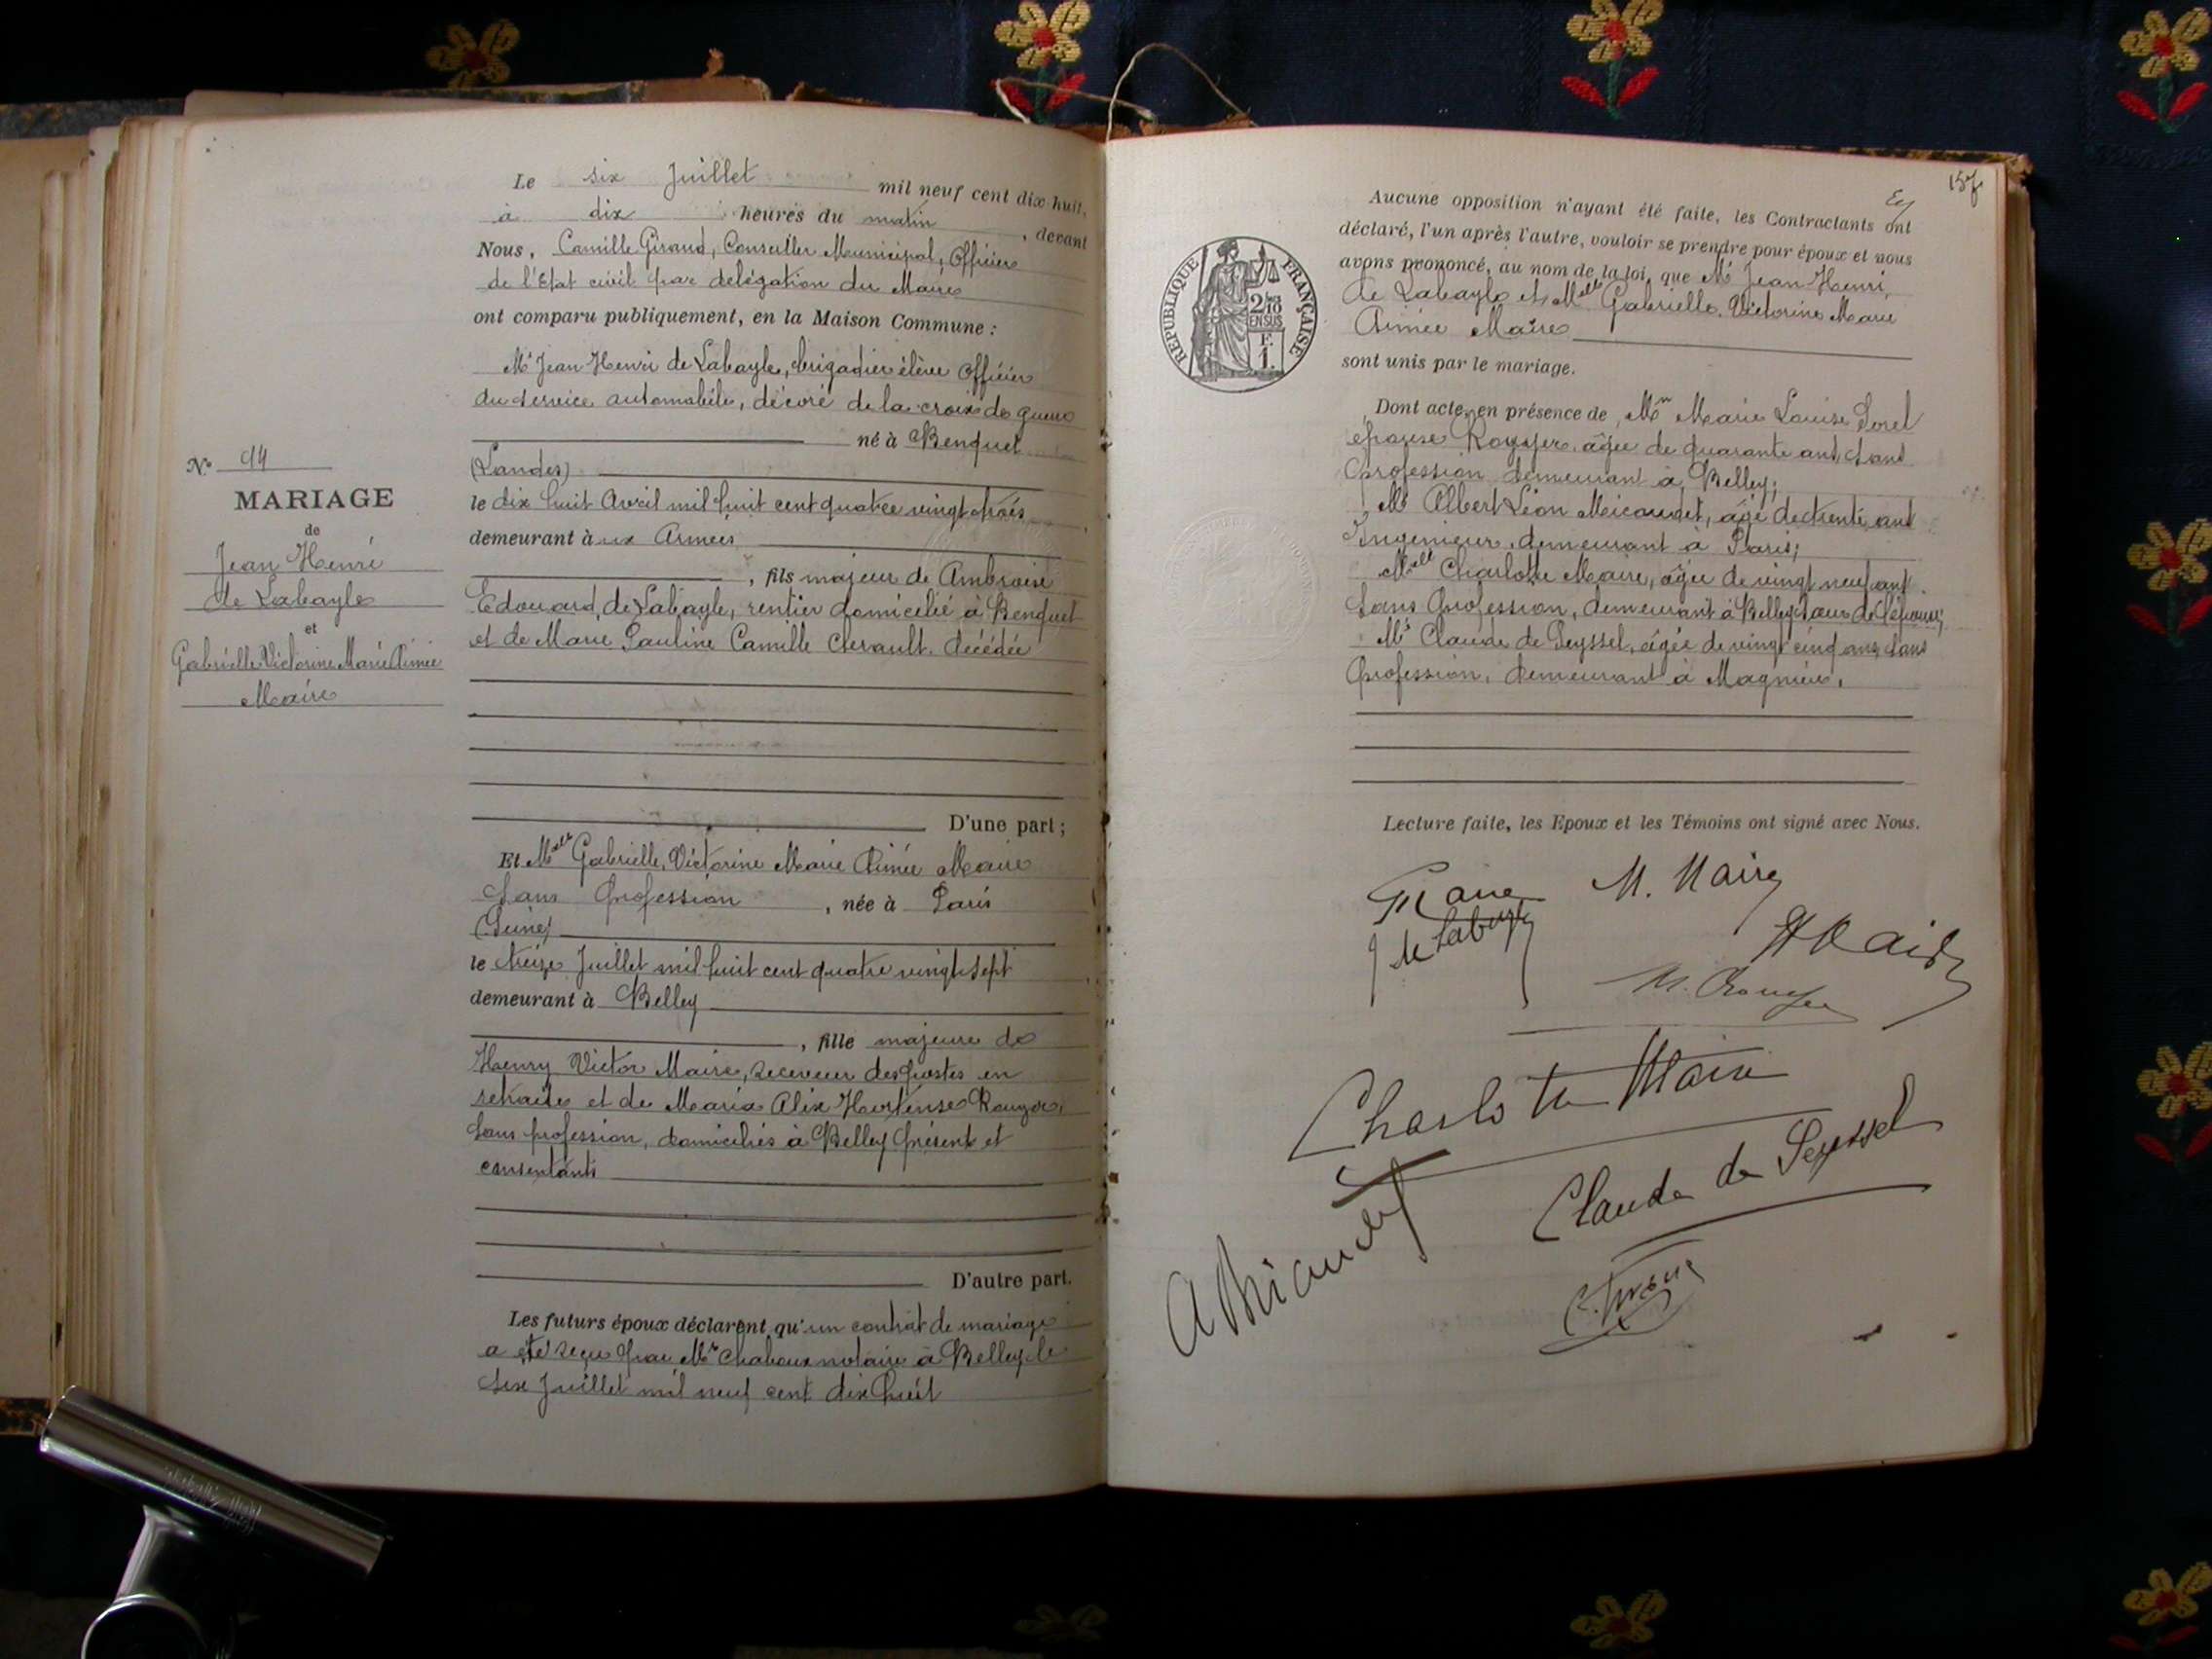 Le six Juillet mil neuf cent dix-huit,
à dix heures du matin, devant
Nous, Camille Giraud, Conseiller Municipal, Officier
de l'Etat civil par délégation du Maire
ont comparu publiquement, en la Maison Commune :
Mr Jean Henri de Labayle, brigadier élève Officier
du service automobile, décoré de la croix de guerre
né à Benquet
(Landes)
le dix huit Avril mil huit cent quatre vingt trois
demeurant à ux Armées
, fils majeur de Ambroise
Edouard, de Labayle, rentier domicilié à Benquet
et de Marie Pauline Camille décédée
D'une part ;
Et Melle Gabrielle, Victorine Marie Aimée Maire
sans profession, née à Paris
(Seine)
le treize Juillet mil huit cent quatre vingt sept
demeurant à Belley
, fille majeure de
Henry Victor Maire, receveur des postes en
retraite et de Maria Alix Hortense
sans profession, domiciliés à Belley présents et
consentants
D'autre part.
Les futurs époux déclarent qu'un contrat de mariage
a été reçu par Me notaire à Belley le
six Juillet mil neuf cent dix huit
No 94
MARIAGE
de
Jean Henri
de Labayle
et
Gabrielle Victorine Marie Aimée
Maire
157
Aucune opposition n'ayant été faite, les Contractants ont
déclaré, l'un après l'autre, vouloir se prendre pour époux et nous
avons prononcé, au nom de la loi, que Mr Jean Henri
de Labayle et Melle Gabrielle Victorine Marie
Aimée Maire
sont unis par le mariage.
RÉPUBLIQUE FRANÇAISE
2/10
EN SUS
F.
1.
Dont acte, en présence de Marie Louise
épouse âgée de quarante ans, sans
profession demeurant à Belley ;
Mr Albert Léon Micaudet, âgé de trente ans
Ingénieur, demeurant à Paris ;
Melle Charlotte Maire, âgée de vingt neuf ans
sans profession, demeurant à Belley sœur de l'épouse ;
Claude de Seyssel, âgée de vingt cinq ans, sans
profession, demeurant à
Lecture faite, les Epoux et les Témoins ont signé avec Nous.
G Maire M. Maire
J de Labayle
H Maire
Charlotte Maire
Claude de Seyssel
A Micaudet
C. Giraud